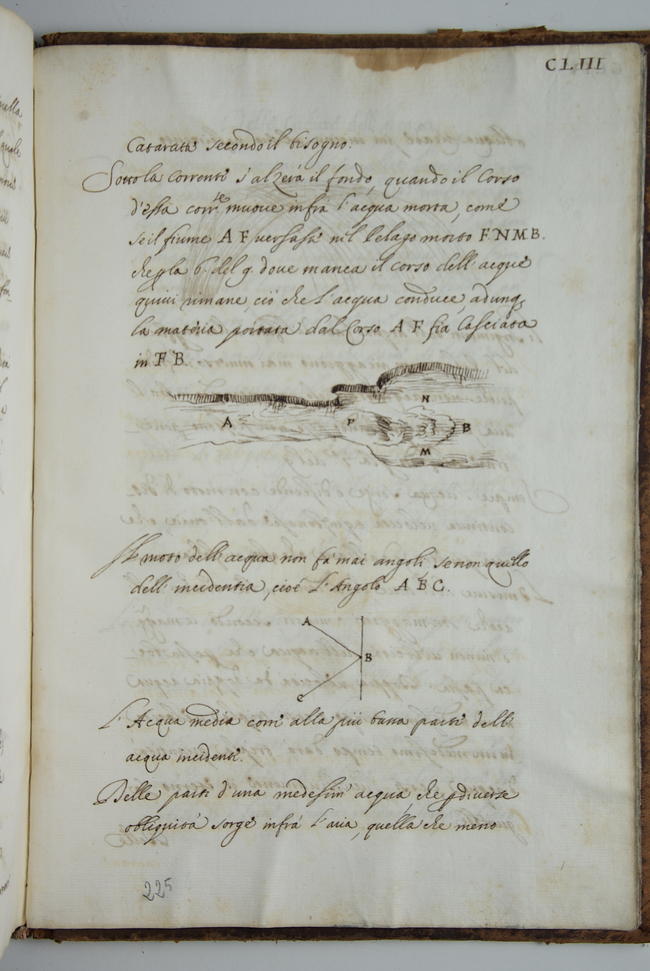 CLIII
Cataratte secondo il bisogno.
Sotto la corrente s'alzerà il fondo, quando il Corso
d'essa corr.te muove infrà l'acqua morta, come
se il fiume A F versasse nel Pelago morto F.N.M.B.
che p la 6.a del 9. dove manca il corso dell'acque
quivi rimane, ciò che l'acqua conduce, adunq.
la materia portata dal Corso A F fia lasciata
in F B.
A F N M B
Il moto dell'acqua non fà mai angoli se non quello
dell'incidentia, cioè l'Angolo A B C.
A
B
C
L'Acqua media corre alla più bassa parte dell'
acqua incidente.
Delle parti d'una medesim' acqua, che p diverse
obliquità sorge infrà l'aria, quella che meno
225